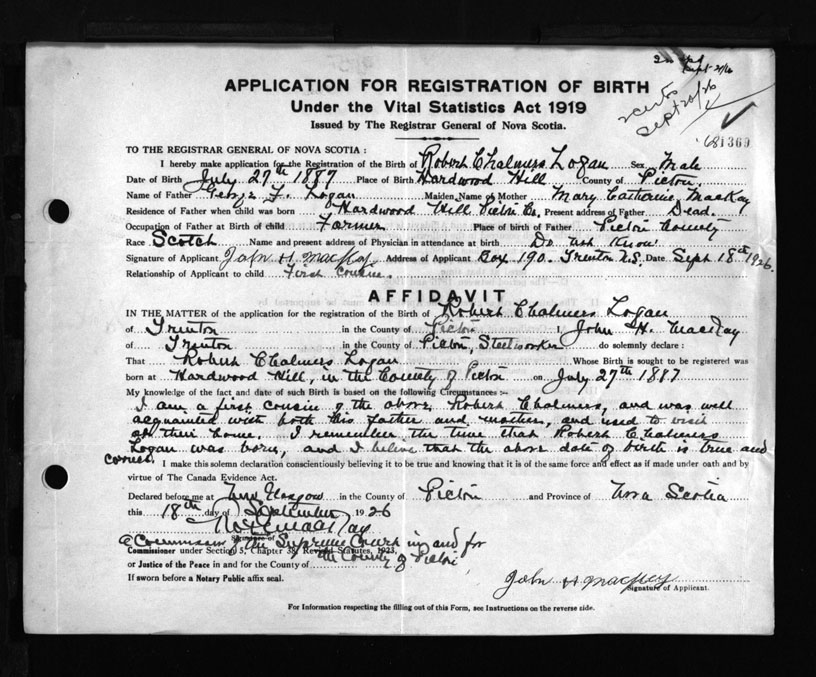 Sept 2/26
Sept 20/26
APPLICATION FOR REGISTRATION OF BIRTH
Under the Vital Statistics Act 1919
Issued by The Registrar General of Nova Scotia.
681369
TO THE REGISTRAR GENERAL OF NOVA SCOTIA :
I hereby make application for the Registration of the Birth of Robert Chalmers Logan Sex Male
Date of Birth July 27th 1887 Place of Birth Hardwood Hill County of Pictou
Name of Father George F. Logan Maiden Name of Mother Mary Catherine MacKay
Residence of Father when child was born Hardwood Hill Pictou Co. Present address of Father Dead.
Occupation of Father at Birth of child Farmer Place of birth of Father Pictou County
Race Scotch Name and present address of Physician in attendance at birth Do not Know
Signature of Applicant John H MacKay Address of Applicant Box 190. Trenton N.S. Date Sept. 18th 1926.
Relationship of Applicant to child First Cousin.
AFFIDAVIT
IN THE MATTER of the application for the registration of the Birth of Robert Chalmers Logan
of Trenton in the County of Pictou I, John H. MacKay
of Trenton in the County of Pictou, Steelworker do solemnly declare :
That Robert Chalmers Logan Whose Birth is sought to be registered was
born at Hardwood Hill, in the County of Pictou on July 27th 1887
My knowledge of the fact and date of such Birth is based on the following Circumstances :-
I am a first cousin of the above Robert Chalmers, and was well
acquainted with both his father and mother, and used to visit
at their home. I remember the time that Robert Chalmers
Logan was born, and I believe that the above date of birth is true and
correct.
I make this solemn declaration conscientiously believing it to be true and knowing that it is of the same force and effect as if made under oath and by
virtue of The Canada Evidence Act.
Declared before me at New Glasgow in the County of Pictou and Province of Nova Scotia
this 18th day of September 1926
MacKay
Signature of
a Commissioner of the Supreme Court in and for
Commissioner under Section 5, Chapter 38, Revised Statutes, 1923,
the County of Pictou
or Justice of the Peace in and for the County of
If sworn before a Notary Public affix seal.
John H MacKay
Signature of Applicant.
For Information respecting the filling out of this Form, see Instructions on the reverse side.